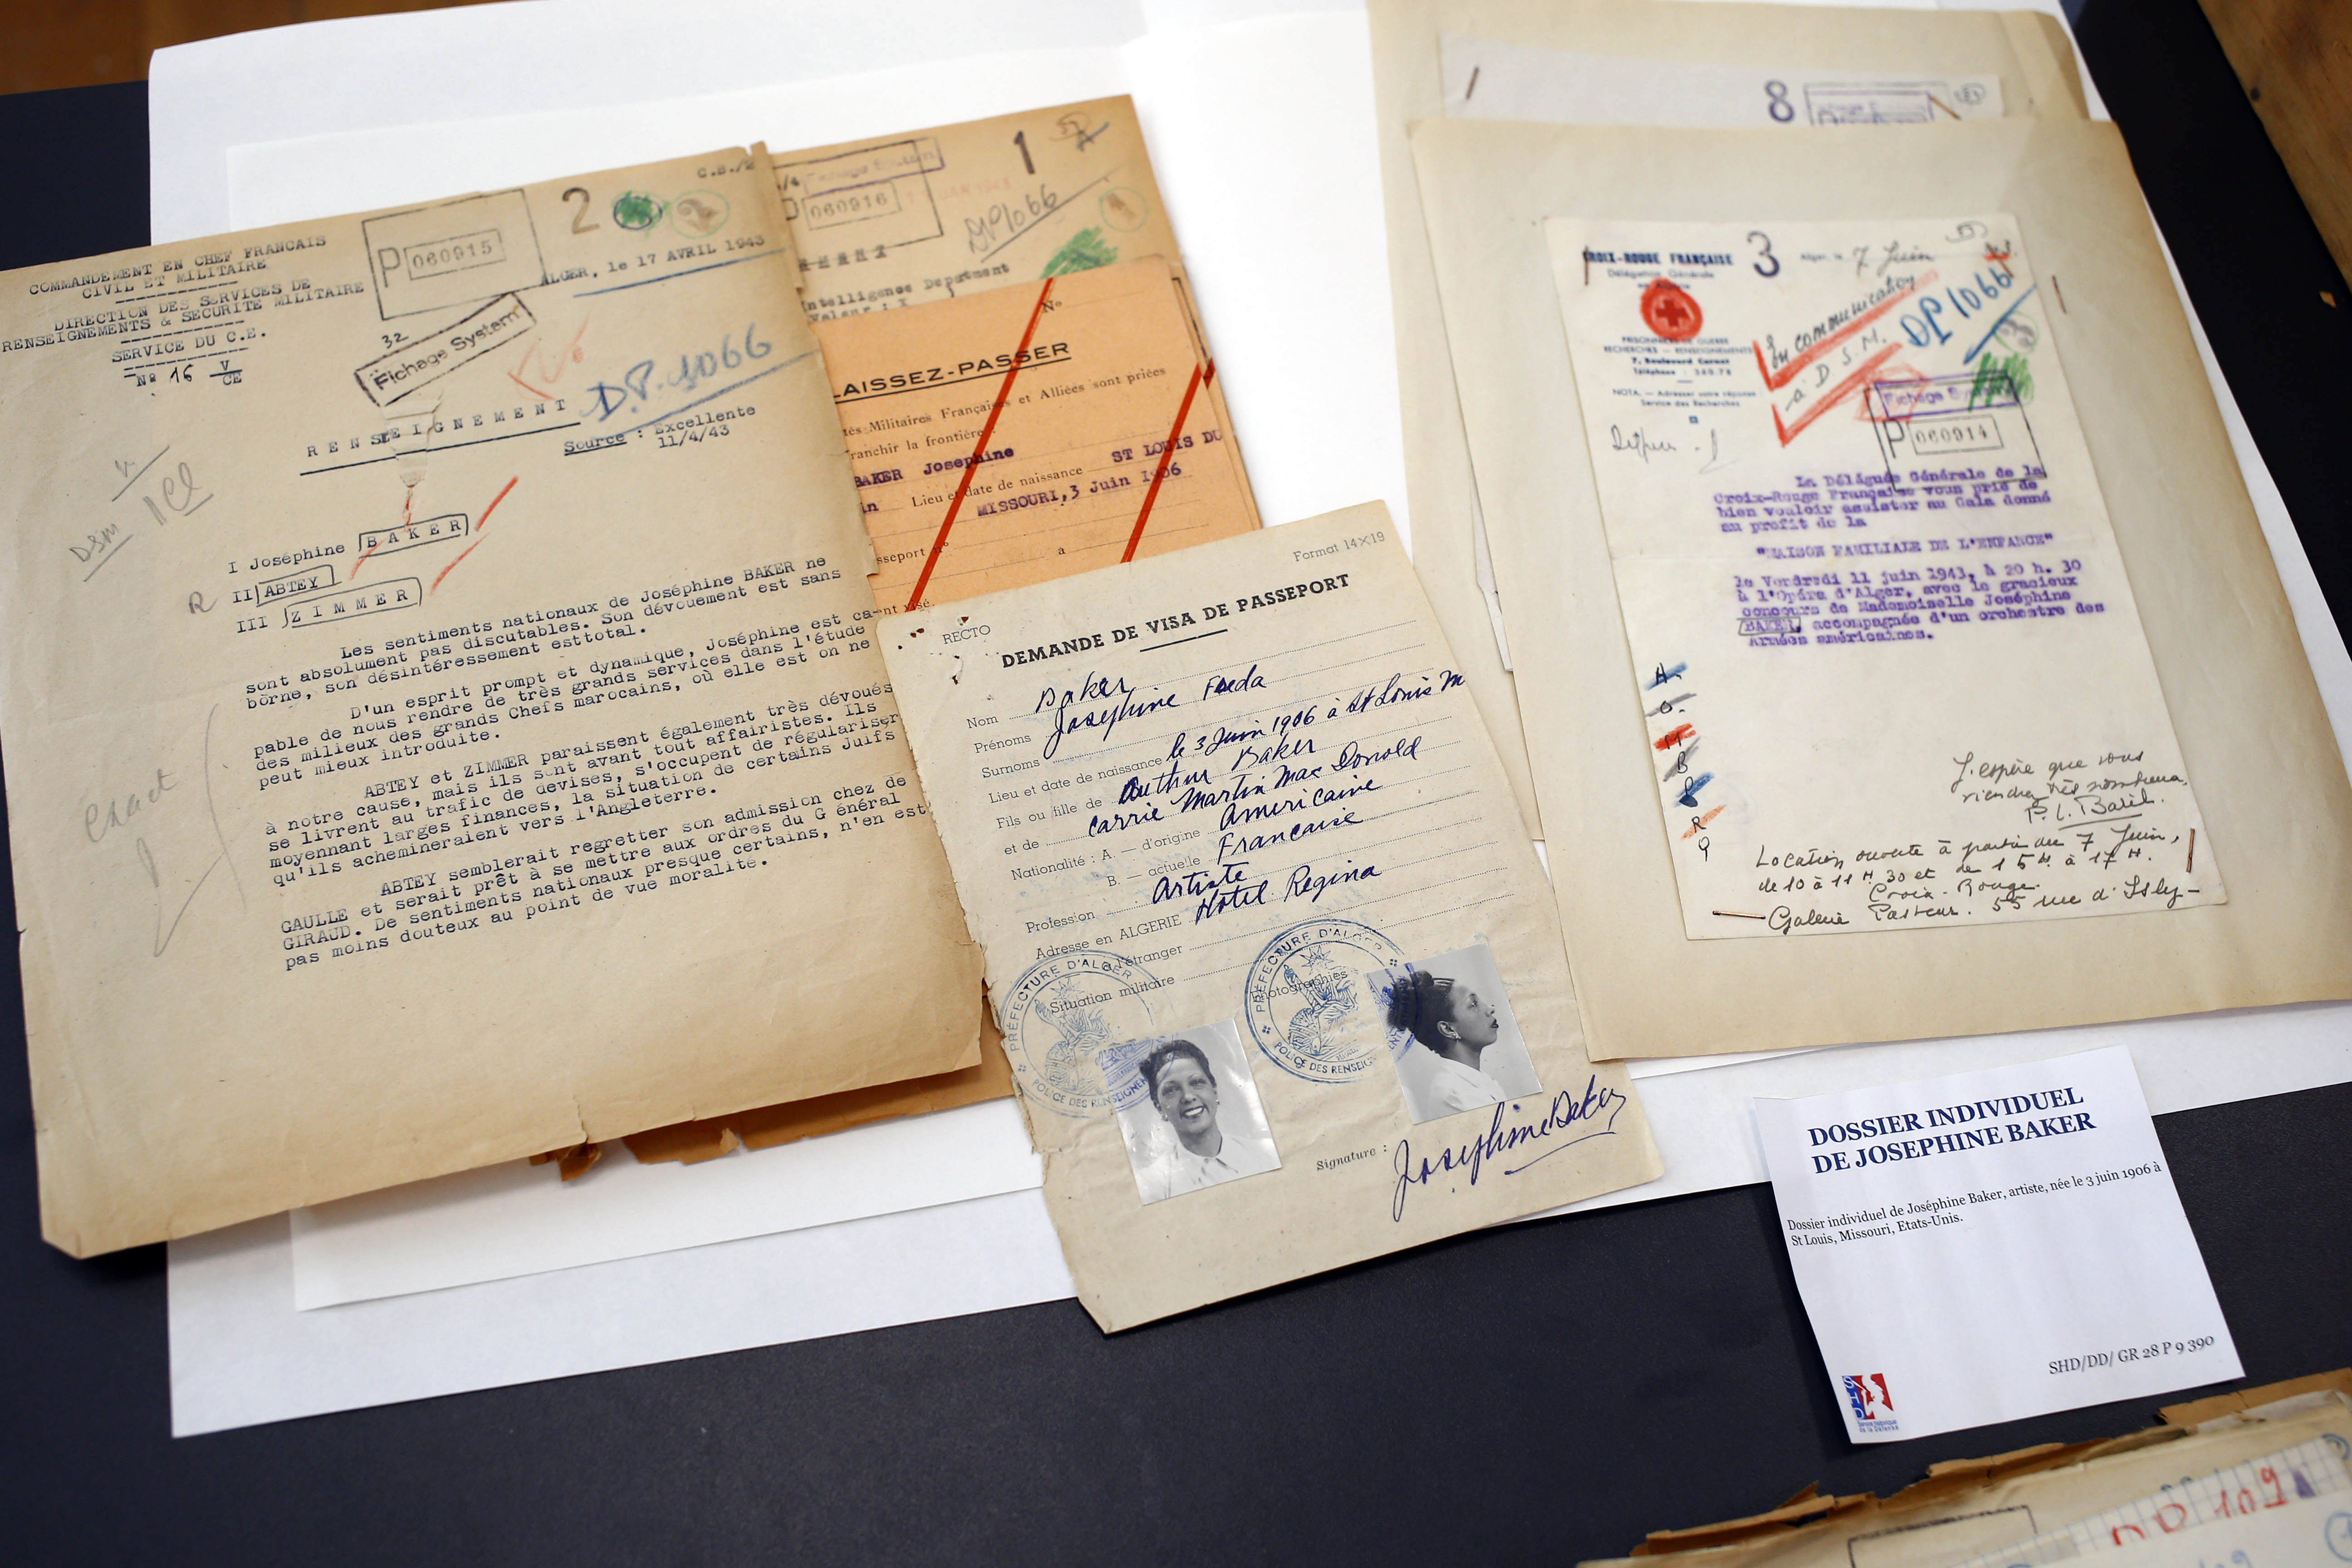 COMMANDEMENT EN CHEF FRANCAIS
CIVIL ET MILITAIRE
DIRECTION DES SERVICES DE
RENSEIGNEMENTS & SECURITE MILITAIRE
SERVICE DU C.E.
Nº 16 V/CE
P 060915
2
C.B./2
ALGER, le 17 AVRIL 1943
32
Fichage System
D.P. 1066
RENSEIGNEMENT
Source : Excellente
11/4/43
DSM
I Joséphine BAKER
R II ABTEY
III ZIMMER
Les sentiments nationaux de Joséphine BAKER ne
sont absolument pas discutables. Son dévouement est sans
borne, son désintéressement est total.
D'un esprit prompt et dynamique, Joséphine est ca-
pable de nous rendre de très grands services dans l'étude
des milieux des grands Chefs marocains, où elle est on ne
peut mieux introduite.
ABTEY et ZIMMER paraissent également très dévoués
à notre cause, mais ils sont avant tout affairistes. Ils
se livrent au trafic de devises, s'occupent de régulariser
moyennant larges finances, la situation de certains Juifs
qu'ils achemineraient vers l'Angleterre.
ABTEY semblerait regretter son admission chez de
GAULLE et serait prêt à se mettre aux ordres du G énéral
GIRAUD. De sentiments nationaux presque certains, n'en est
pas moins douteux au point de vue moralité.
exact
1
060916
DP1066
Intelligence Department
Valeur : X
Nº
LAISSEZ-PASSER
tés Militaires Françaises et Alliées sont priées
ranchir la frontière
BAKER Josephine
Lieu et date de naissance ST LOUIS DU
MISSOURI, 3 Juin 1906
sseport nº a
nt visé.
Format 14×19
RECTO
DEMANDE DE VISA DE PASSEPORT
Nom Baker
Prénoms Josephine Freda
Surnoms
Lieu et date de naissance le 3 Juin 1906 à St Louis M
Fils ou fille de Arthur Baker
et de Carrie Martin Mac Donald
Nationalité : A. — d'origine Americaine
B. — actuelle Francaise
Profession Artiste
Adresse en ALGERIE Hotel Regina
à l'étranger
Situation militaire
Photographies
PRÉFECTURE D'ALGER
POLICE DES RENSEIGNEMEN
PRÉFECTURE D'ALGER
POLICE DES RENSEIG
Signature : Josephine Baker
8
CROIX-ROUGE FRANÇAISE
Délégation Générale
en
3
Alger, le 7 Juin
PRISONNIERS DE GUERRE
RECHERCHES — RENSEIGNEMENTS
7, Boulevard Carnot
NOTA. — Adresser votre réponse :
Service des Recherches
En communication
à D.S.M.
DP 1066
Fichage System
P 060914
La Déléguée Générale de la
Croix-Rouge Française vous prie de
bien vouloir assister au Gala donné
au profit de la
"MAISON FAMILIALE DE L'ENFANCE"
le Vendredi 11 juin 1943, à 20 h. 30
à l'Opéra d'Alger, avec le gracieux
concours de Mademoiselle Joséphine
BAKER, accompagnée d'un orchestre des
Armées américaines.
A.
O.
M
B
R
J'espère que vous
viendrez très nombreux
Location ouverte à partir du 7 Juin,
de 10 à 11 H 30 et de 15 H. à 17 H.
Croix-Rouge.
Galerie Pasteur. 55 rue d'Isly-
DOSSIER INDIVIDUEL
DE JOSEPHINE BAKER
Dossier individuel de Joséphine Baker, artiste, née le 3 juin 1906 à
St Louis, Missouri, Etats-Unis.
SHD/DD/ GR 28 P 9 390